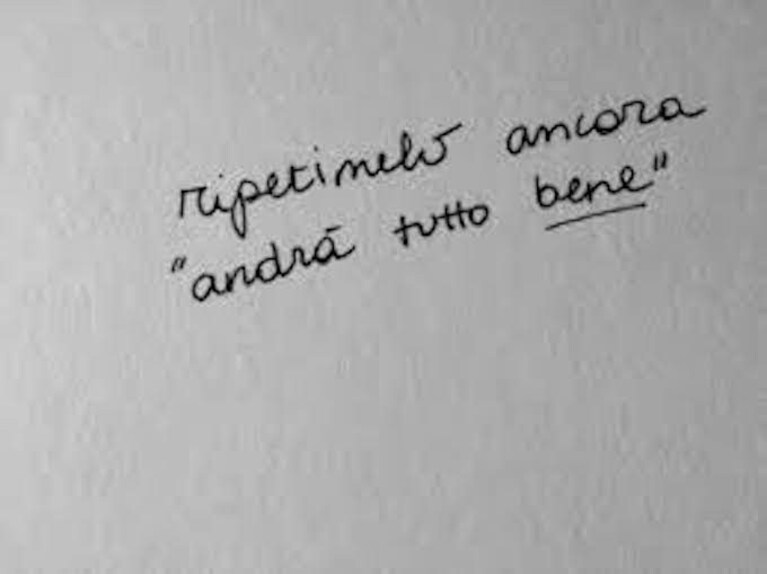 ripetimelo ancora
"andrà tutto bene"